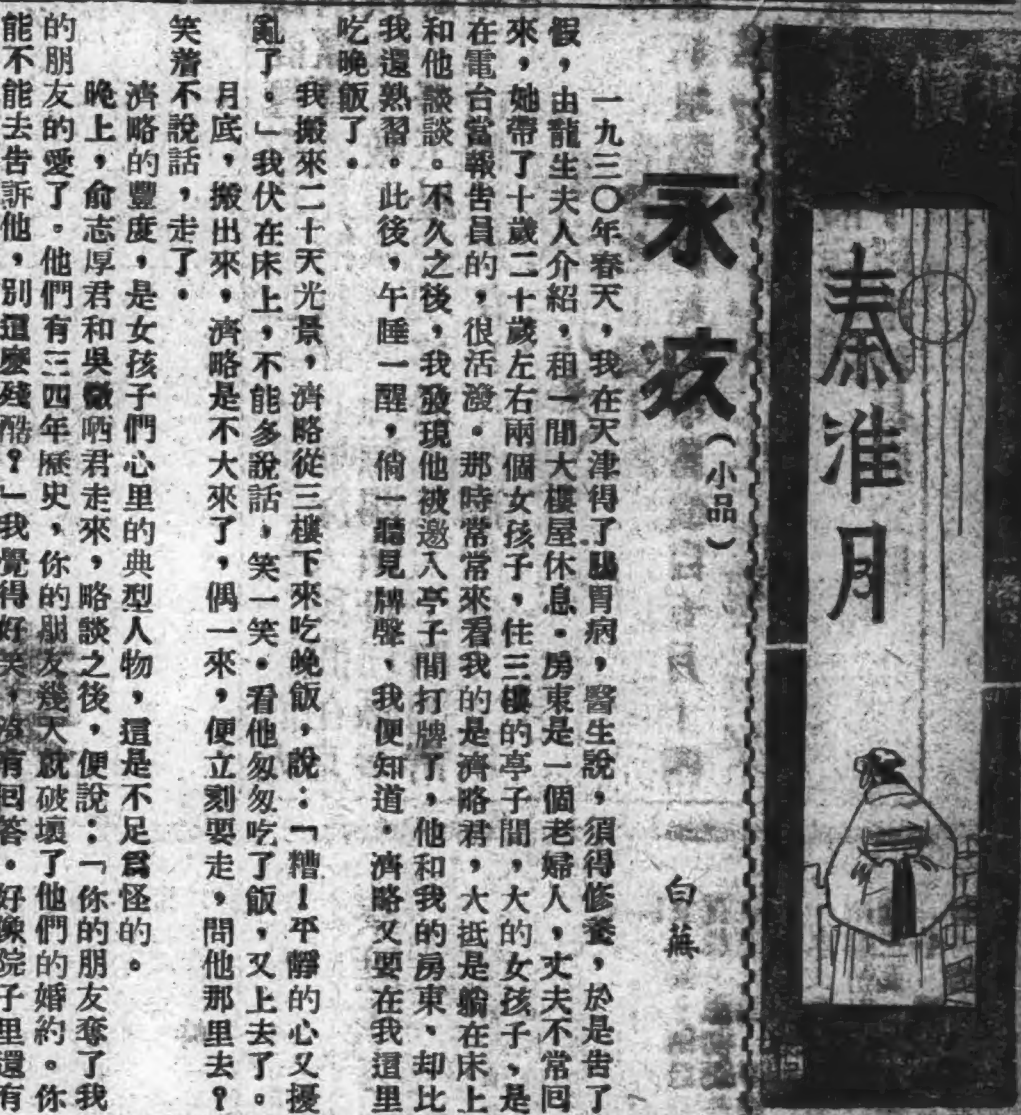 秦淮月
永孩
（小品）
白蕪
一九三〇年春天，我在天津得了腸胃病，醫生說，須得修養，於是告了
假，由龍生夫人介紹，租一間大樓屋休息。房東是一個老婦人，丈夫不常回
來，她帶了十歲二十歲左右兩個女孩子，住三樓的亭子間，大的女孩子，是
在電台當報告員的，很活潑。那時常常來看我的是濟略君，大抵是躺在床上
和他談談。不久之後，我發現他被邀入亭子間打牌了，他和我的房東、却比
我還熟習。此後，午睡一醒，倘一聽見牌聲，我便知道。濟略又要在我這里
吃晚飯了。
我搬來二十天光景，濟略從三樓下來吃晚飯，說：「糟！平靜的心又擾
亂了。」我伏在床上，不能多說話，笑一笑。看他匆匆吃了飯，又上去了。
月底，搬出來，濟略是不大來了，偶一來，便立刻要走，問他那里去？
笑着不說話，走了。
濟略的豐度，是女孩子們心里的典型人物，這是不足爲怪的。
晚上，俞志厚君和吳微哂君走來，略談之後，便說：「你的朋友奪了我
的朋友的愛了。他們有三四年歷史，你的朋友幾天就破壞了他們的婚約。你
能不能去告訴他，別這麽殘酷？」我覺得好笑，沒有回答。好像院子里還有